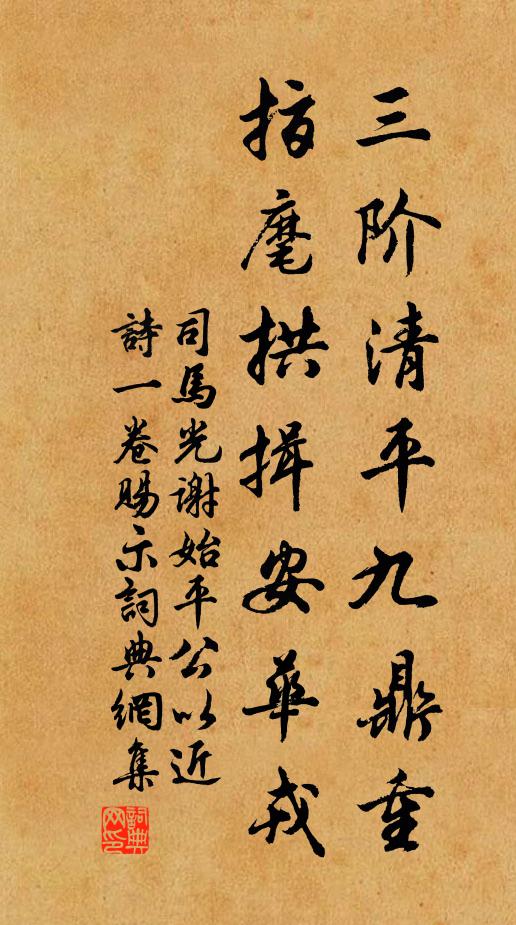 三阶清平九鼎重
指麾拱揖安華戎
司馬光谢始平公以近
詩一卷賜示詞典網集
詞典
网印